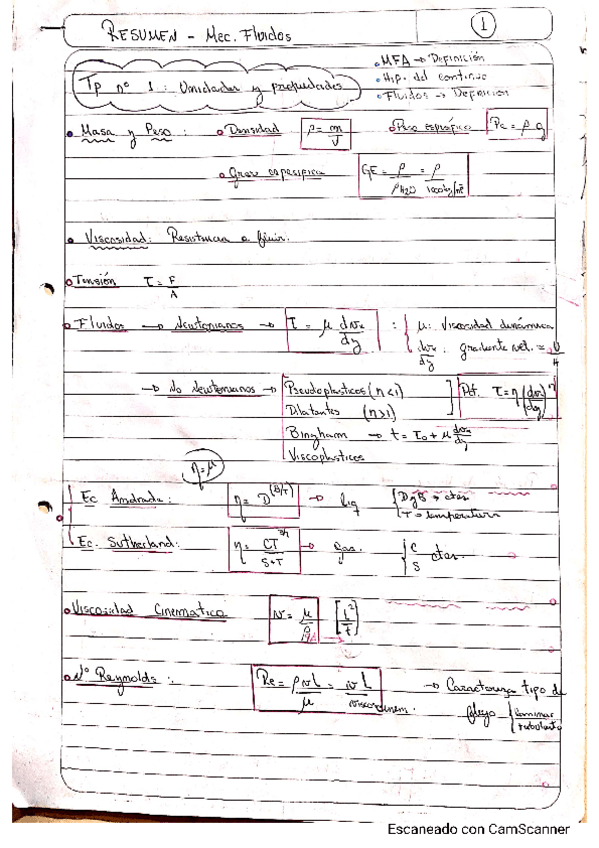 RESUMEN - Mec. Fluidos
1
Tp n° 1: Unidades y propiedades
• MFA → Definición
• Hip. del continuo
• Fluidos → Definición
• Masa y Peso: • Densidad ρ = m/V • Peso específico Pe = ρ g
• Grav especifica GE = ρ/ρH2O = ρ/1000kg/m³
• Viscosidad: Resistencia a fluir.
• Tensión τ = F/A
• Fluidos → Newtonianos → τ = μ dvx/dy : { μ: Viscosidad dinámica
dvx/dy : gradiente vel. = U/H
→ No Newtonianos → Pseudoplasticos (n<1)
Dilatantes (n>1)
] Pot. τ = η (dvx/dy)^n
Bingham → t = τo + μ dvx/dy
Viscoplasticos
η = μ
Ec Andrade: η = D^(B/T) → liq { D y B = ctes
T = temperatura
Ec. Sutherland: η = CT^3/2/S+T → gas. { C S ctes.
• Viscosidad Cinematica ν = μ/ρ [L²/t]
• N° Reynolds: Re = ρvL/μ = v L/visc cinem. → Caracteriza tipo de
flujo { laminar
turbulento
Escaneado con CamScanner